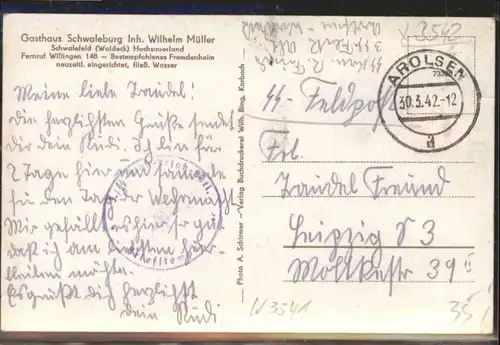 Gasthaus Schwaleburg Inh. Wilhelm Müller
Schwalefeld (Waldeck) Hochsauerland
Fernruf Willingen 148 — Bestempfohlenes Fremdenheim
neuzeitl. eingerichtet, fließ. Wasser
Meine liebe Traudel!
Die herzlichsten Grüße sendet
dir dein Rudi. Ich bin für
2 Tage hier und sammle
für den Tag der Wehrmacht.
Mir gefällt es hier so gut
daß ich am liebsten hier
bleiben möchte.
Es grüßt dich herzlichst
dein Rudi
Photo A. Schirmer — Verlag Buchdruckerei Wilh. Bing, Korbach
AROLSEN
30.3.42.-12
a
SS-Feldpost
Frl.
Traudel Freund
Leipzig S 3
Moltkestr 39 II
W354
35